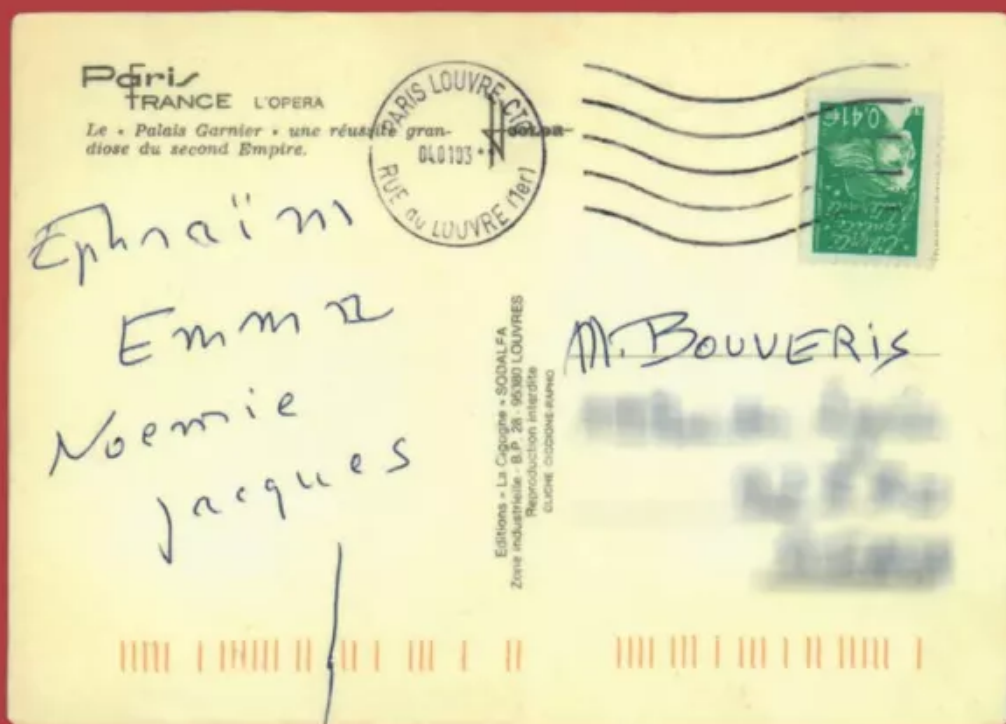 Paris
FRANCE L'OPERA
Le « Palais Garnier » une réussite gran-
diose du second Empire.
PARIS LOUVRE CTC
040103 **
RUE du LOUVRE (1er)
0,41€
Ephraïm
Emma
Noemie
Jacques
M. BOUVERIS
Editions « La Cigogne » SODALFA
Zone industrielle - B.P. 28 - 95380 LOUVRES
Reproduction interdite
CLICHE CICCIONE-RAPHO